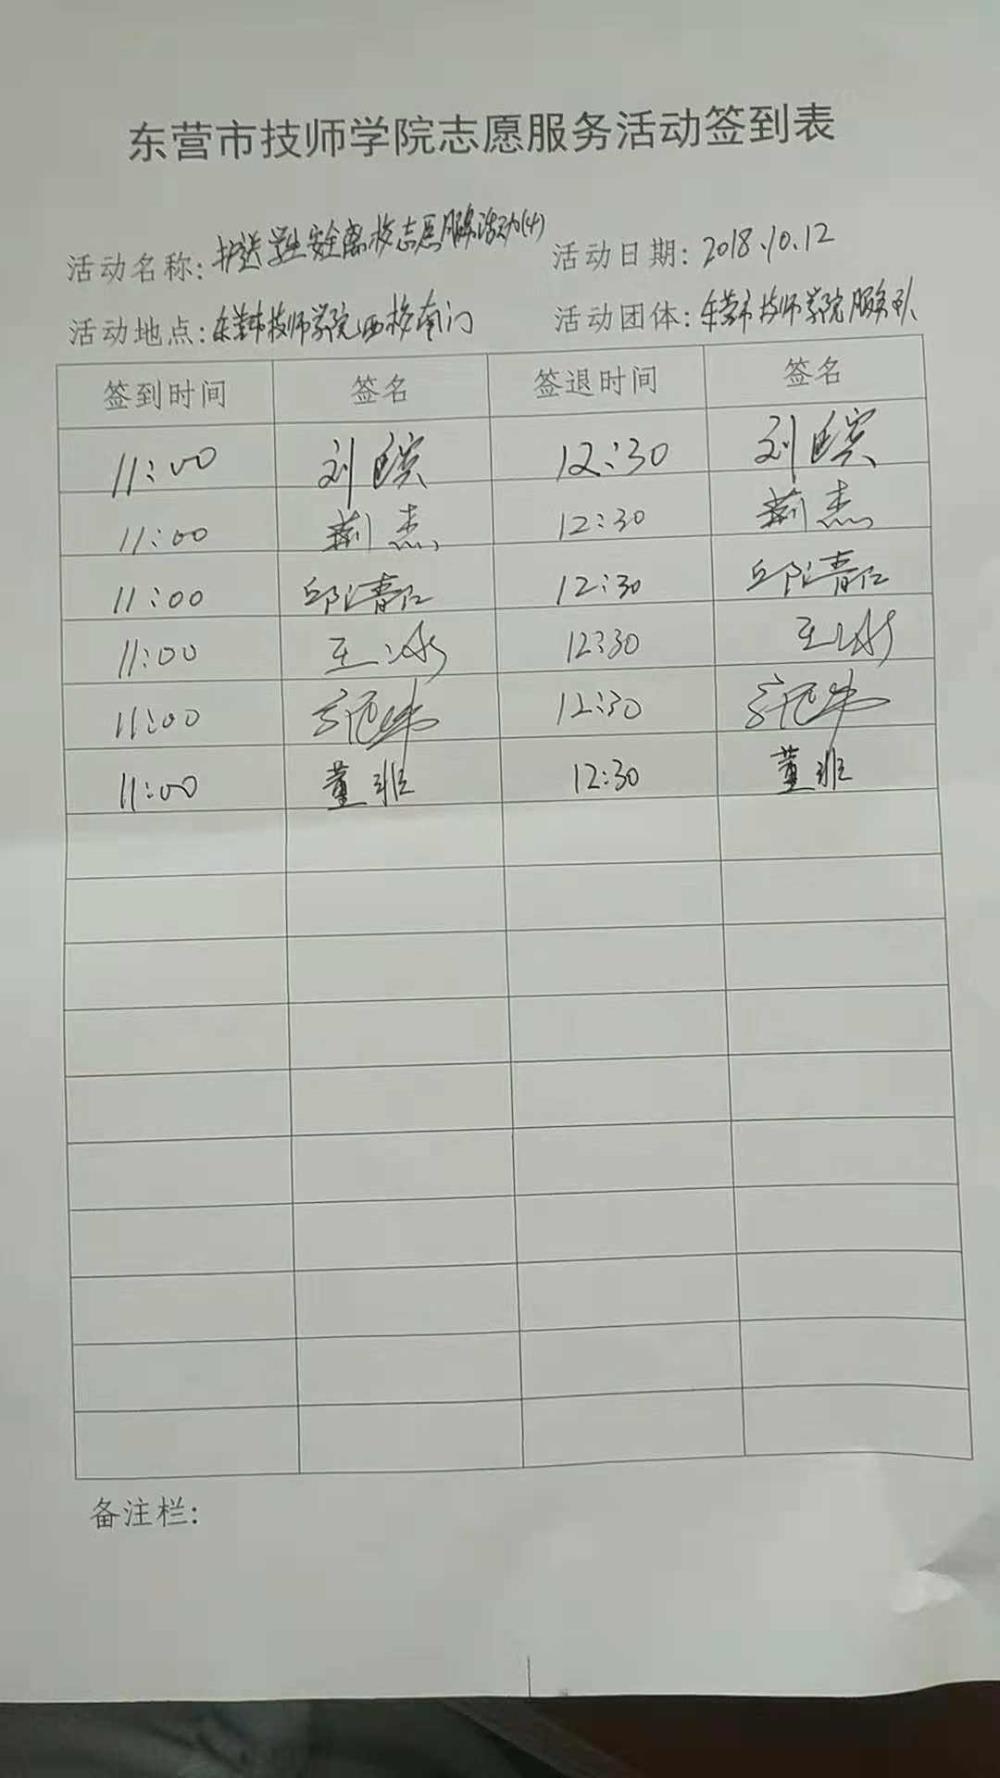 东营市技师学院志愿服务活动签到表
活动名称: 护送学生安全离校志愿服务活动(4) 活动日期: 2018.10.12
活动地点: 东营市技师学院西校南门 活动团体: 东营市技师学院服务队
签到时间 签名 签退时间 签名
11:00 刘 12:30 刘
11:00 荆杰 12:30 荆杰
11:00 邱清 12:30 邱清
11:00 王 12:30 王
11:00 12:30
11:00 董班 12:30 董班
备注栏: